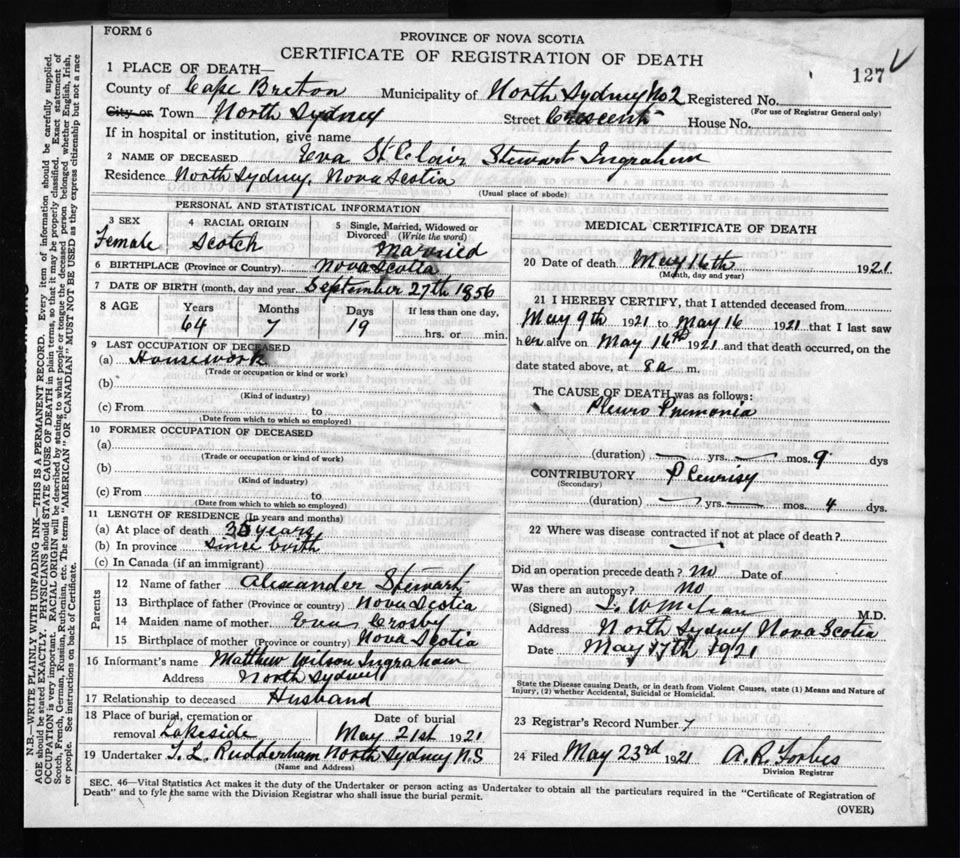 FORM 6
PROVINCE OF NOVA SCOTIA
CERTIFICATE OF REGISTRATION OF DEATH
127
1 PLACE OF DEATH—
County of Cape Breton Municipality of North Sydney No 2 Registered No.
(For use of Registrar General only)
City or Town North Sydney Street Crescent House No.
If in hospital or institution, give name
2 NAME OF DECEASED Eva St Clair Stewart Ingraham
Residence North Sydney, Nova Scotia
(Usual place of abode)
PERSONAL AND STATISTICAL INFORMATION
3 SEX Female
4 RACIAL ORIGIN Scotch
5 Single, Married, Widowed or Divorced (Write the word) Married
6 BIRTHPLACE (Province or Country) Nova Scotia
7 DATE OF BIRTH (month, day and year) September 27th 1856
8 AGE Years Months Days If less than one day,
64 7 19 hrs. or min.
9 LAST OCCUPATION OF DECEASED
(a) Housework
(Trade or occupation or kind or work)
(b)
(Kind of industry)
(c) From to
(Date from which to which so employed)
10 FORMER OCCUPATION OF DECEASED
(a)
(Trade or occupation or kind of work)
(b)
(Kind of industry)
(c) From to
(Date from which to which so employed)
11 LENGTH OF RESIDENCE (In years and months)
(a) At place of death years
(b) In province since birth
(c) In Canada (if an immigrant)
Parents
12 Name of father Alexander Stewart
13 Birthplace of father (Province or country) Nova Scotia
14 Maiden name of mother Crosby
15 Birthplace of mother (Province or country) Nova Scotia
16 Informant's name Matthew Wilson Ingraham
Address North Sydney
17 Relationship to deceased Husband
18 Place of burial, cremation or removal Lakeside
Date of burial May 21st 1921
19 Undertaker T. L. Rudderham North Sydney N.S
(Name and Address)
MEDICAL CERTIFICATE OF DEATH
20 Date of death May 16th 1921
(Month, day and year)
21 I HEREBY CERTIFY, that I attended deceased from
May 9th 1921 to May 16 1921 that I last saw
her alive on May 16th 1921 and that death occurred, on the
date stated above, at 8 a m.
The CAUSE OF DEATH was as follows:
Pleuro Pnumonia
(duration) yrs. mos. 9 dys
CONTRIBUTORY Pleurisy
(Secondary)
(duration) yrs. mos. 4 dys.
22 Where was disease contracted if not at place of death?
Did an operation precede death? No Date of
Was there an autopsy? No
(Signed) M.D.
Address North Sydney Nova Scotia
Date May 17th 1921
State the Disease causing Death, or in death from Violent Causes, state (1) Means and Nature of
Injury, (2) whether Accidental, Suicidal or Homicidal.
23 Registrar's Record Number 7
24 Filed May 23rd 1921 A. R. Forbes
Division Registrar
SEC. 46—Vital Statistics Act makes it the duty of the Undertaker or person acting as Undertaker to obtain all the particulars required in the "Certificate of Registration of
Death" and to fyle the same with the Division Registrar who shall issue the burial permit.
(OVER)
N.B.—WRITE PLAINLY, WITH UNFADING INK—THIS IS A PERMANENT RECORD. Every item of information should be carefully supplied.
AGE should be stated EXACTLY. PHYSICIANS should STATE CAUSE OF DEATH in plain terms, so that it may be properly classified. Exact statement of
OCCUPATION is very important. RACIAL ORIGIN will be described by stating to what people or tongue the deceased person belonged whether English, Irish,
Scotch, French, German, Russian, Ruthenian, etc. The terms "AMERICAN" OR "CANADIAN" MUST NOT BE USED as they express citizenship but not a race
or people. See instructions on back of Certificate.